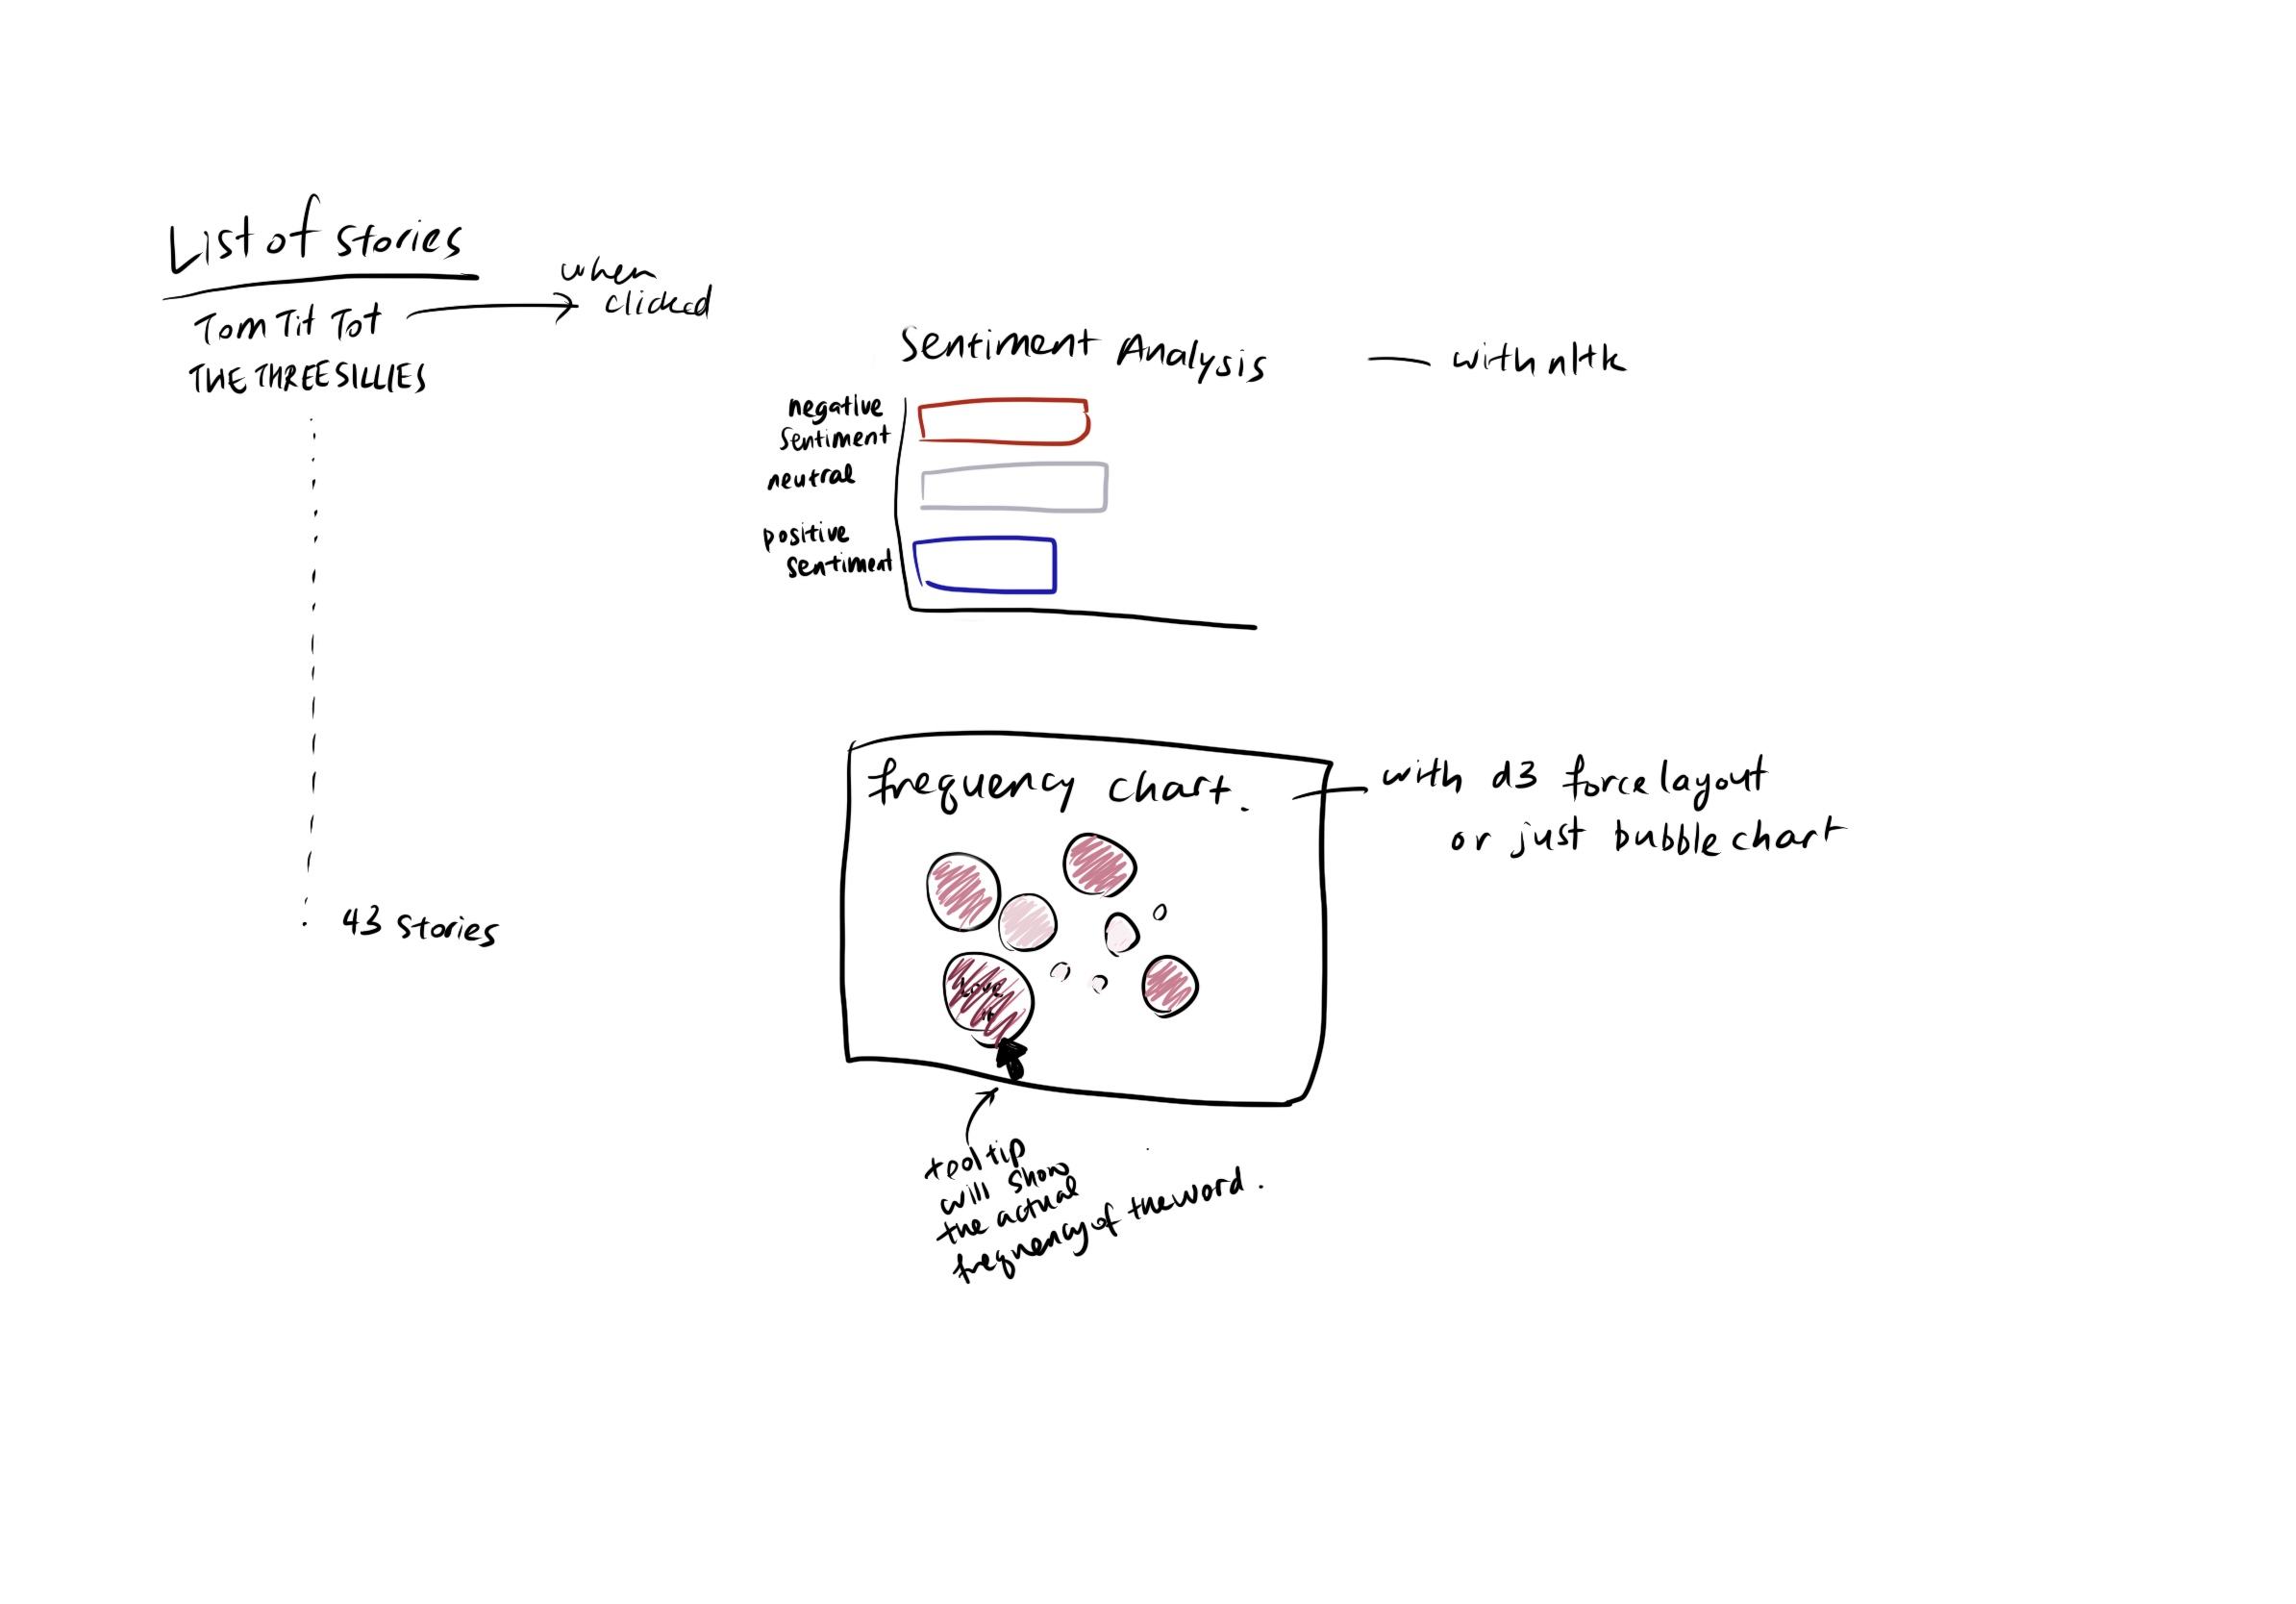 List of stories
Tom Tit Tot
when
clicked
THE THREE SILLIES
43 stories
Sentiment Analysis
with nltk
negative
sentiment
neutral
positive
sentiment
frequency chart.
with d3 force layout
or just bubble chart
tooltip
will show
the actual
frequency of the word.